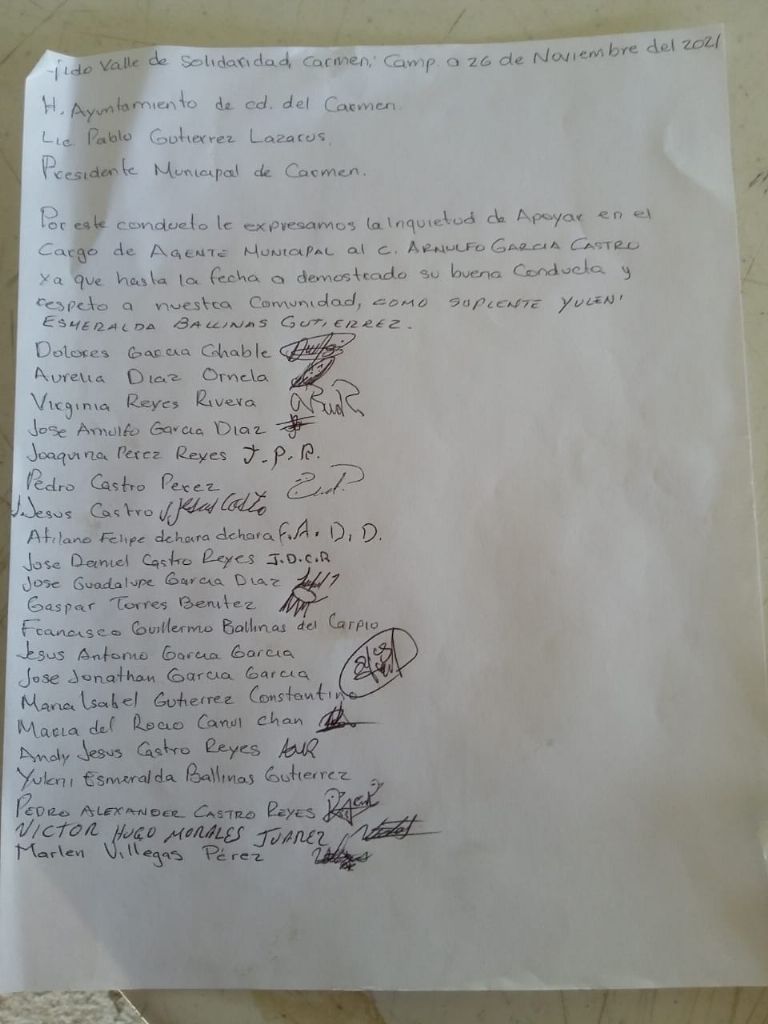 jido Valle de Solidaridad, Carmen, Camp. a 26 de Noviembre del 2021
H. Ayuntamiento de cd. del Carmen.
Lic Pablo Gutierrez Lazarus.
Presidente Municipal de Carmen.
Por este conducto le expresamos la Inquietud de Apoyar en el
Cargo de AGENTE MUNICIPAL al C. ARNULFO GARCIA CASTRO
Ya que hasta la fecha a demostrado su buena Conducta y
respeto a nuestra Comunidad, COMO SUPLENTE YULENI
ESMERALDA BALLINAS GUTIERREZ.
Dolores Garcia Chable
Aurelia Diaz Ornela
Virginia Reyes Rivera
Jose Arnulfo Garcia Diaz
Joaquina Perez Reyes J.P.R.
Pedro Castro Perez
J. Jesus Castro J. Jesus Casto
Atilano Felipe dchara dchara F.A.D.D.
Jose Daniel Castro Reyes J.D.C.R
Jose Guadalupe Garcia Diaz
Gaspar Torres Benitez
Francisco Guillermo Ballinas del Carpio
Jesus Antonio Garcia Garcia
Jose Jonathan Garcia Garcia
Maria Isabel Gutierrez Constantino
Maria del Rocio Canul Chan
Andy Jesus Castro Reyes
Yuleni Esmeralda Ballinas Gutierrez
PEDRO ALEXANDER CASTRO REYES
VICTOR HUGO MORALES JUAREZ
Marlen Villegas Pérez